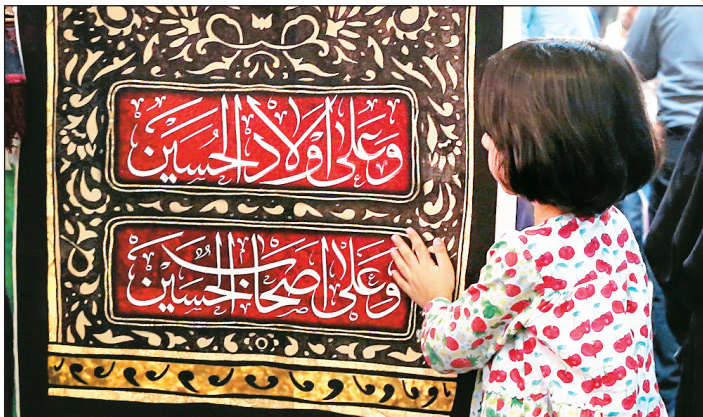 وَعَلىٰ اَوْلادِ الحُسَين
وَعَلىٰ اَصحابِ الحُسَين